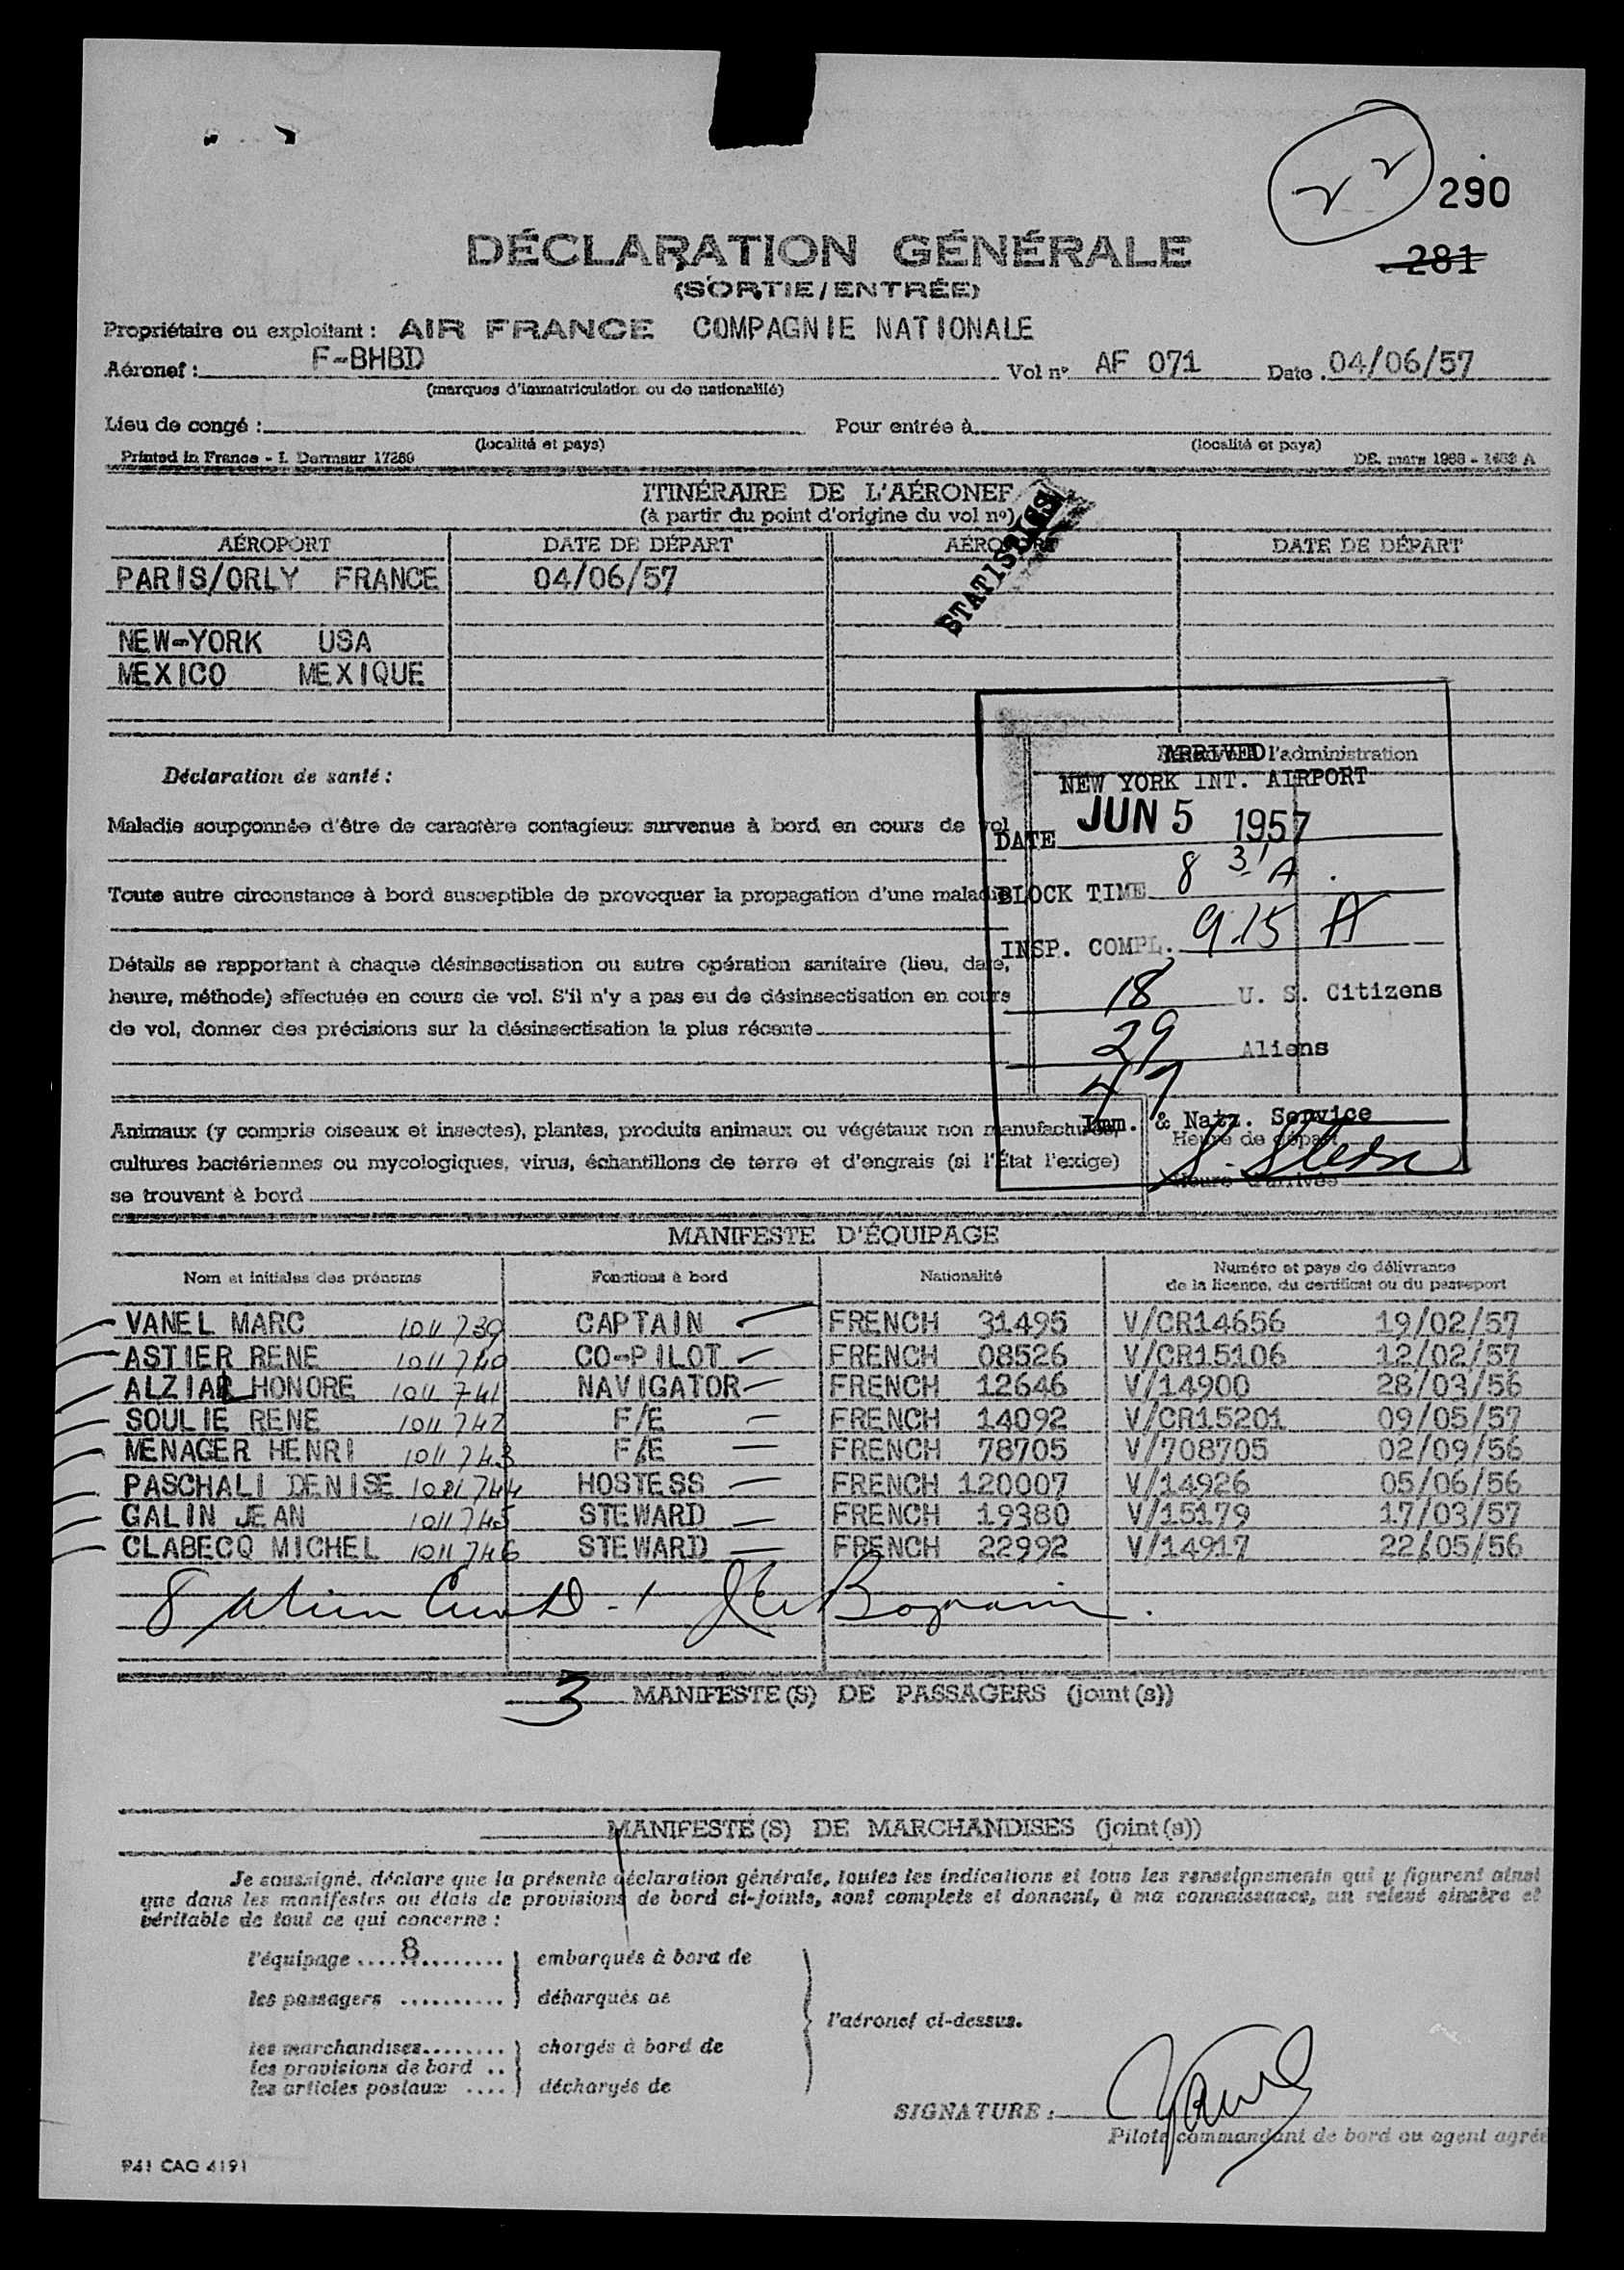 22
290
281
DÉCLARATION GÉNÉRALE
(SORTIE/ENTRÉE)
Propriétaire ou exploitant : AIR FRANCE COMPAGNIE NATIONALE
Aéronef : F-BHBD Vol nº AF 071 Date 04/06/57
(marques d'immatriculation ou de nationalité)
Lieu de congé : Pour entrée à
(localité et pays) (localité et pays)
Printed in France - I. Dermaur 17269 DE. mars 1953 - A
ITINÉRAIRE DE L'AÉRONEF
(à partir du point d'origine du vol nº)
STATISTICS
AÉROPORT DATE DE DÉPART AÉROPORT DATE DE DÉPART
PARIS/ORLY FRANCE 04/06/57
NEW-YORK USA
MEXICO MEXIQUE
l'administration
ARRIVED
NEW YORK INT. AIRPORT
DATE JUN 5 1957
BLOCK TIME 8 31 A.
INSP. COMPL. 9.15 A
18 U. S. Citizens
29 Aliens
47
Imm. & Natz. Service
Déclaration de santé :
Maladie soupçonnée d'être de caractère contagieux survenue à bord en cours de vol
Toute autre circonstance à bord susceptible de provoquer la propagation d'une maladie
Détails se rapportant à chaque désinsectisation ou autre opération sanitaire (lieu, date,
heure, méthode) effectuée en cours de vol. S'il n'y a pas eu de désinsectisation en cours
de vol, donner des précisions sur la désinsectisation la plus récente
Animaux (y compris oiseaux et insectes), plantes, produits animaux ou végétaux non manufacturés,
cultures bactériennes ou mycologiques, virus, échantillons de terre et d'engrais (si l'État l'exige)
se trouvant à bord
Heure de départ
Heure d'arrivée
MANIFESTE D'ÉQUIPAGE
Nom et initiales des prénoms Fonctions à bord Nationalité Numéro et pays de délivrance
de la licence, du certificat ou du passeport
VANEL MARC 1011739 CAPTAIN FRENCH 31495 V/CR14656 19/02/57
ASTIER RENE 1011740 CO-PILOT FRENCH 08526 V/CR15106 12/02/57
ALZIAR HONORE 1011741 NAVIGATOR FRENCH 12646 V/14900 28/03/56
SOULIE RENE 1011742 F/E FRENCH 14092 V/CR15201 09/05/57
MENAGER HENRI 1011743 F/E FRENCH 78705 V/708705 02/09/56
PASCHALI DENISE 1011744 HOSTESS FRENCH 120007 V/14926 05/06/56
GALIN JEAN 1011745 STEWARD FRENCH 19380 V/15179 17/03/57
CLABECQ MICHEL 1011746 STEWARD FRENCH 22992 V/14917 22/05/56
8 alien
3 MANIFESTE(S) DE PASSAGERS (joint(s))
MANIFESTE(S) DE MARCHANDISES (joint(s))
Je soussigné, déclare que la présente déclaration générale, toutes les indications et tous les renseignements qui y figurent ainsi
que dans les manifestes ou états de provisions de bord ci-joints, sont complets et donnent, à ma connaissance, un relevé sincère et
véritable de tout ce qui concerne :
l'équipage ....8.......... embarqués à bord de
les passagers .......... débarqués de
l'aéronef ci-dessus.
les marchandises........ chargés à bord de
les provisions de bord ..
les articles postaux .... déchargés de
SIGNATURE :
Pilote commandant de bord ou agent agréé
941 CAG 4191